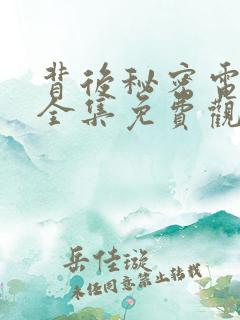 背後秘密電
全集免費觀
岳佳璇
未经同意禁止转载